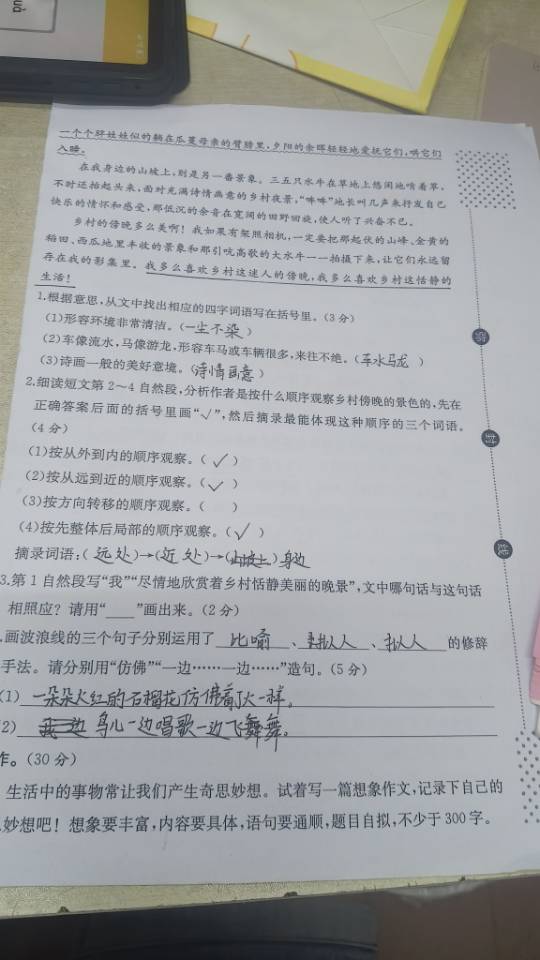 一个个胖娃娃似的躺在瓜蔓母亲的臂膀里,夕阳的余晖轻轻地爱抚它们,哄它们
入睡。
在我身边的山坡上,则是另一番景象。三五只水牛在草地上悠闲地啃着草,
不时还抬起头来,面对充满诗情画意的乡村夜景,“哞哞”地长叫几声来抒发自己
快乐的情怀和感受,那低沉的余音在宽阔的田野回旋,使人听了兴奋不已。
乡村的傍晚多么美啊!我如果有架照相机,一定要把那起伏的山峰、金黄的
稻田、西瓜地里丰收的景象和那引吭高歌的大水牛一一拍摄下来,让它们永远留
存在我的影集里。我多么喜欢乡村这迷人的傍晚,我多么喜欢乡村这恬静的
生活!
1.根据意思,从文中找出相应的四字词语写在括号里。(3分)
(1)形容环境非常清洁。(一尘不染)
(2)车像流水,马像游龙,形容车马或车辆很多,来往不绝。(车水马龙)
(3)诗画一般的美好意境。(诗情画意)
2.细读短文第2~4自然段,分析作者是按什么顺序观察乡村傍晚的景色的,先在
正确答案后面的括号里画“√”,然后摘录最能体现这种顺序的三个词语。
(4分)
(1)按从外到内的顺序观察。(√)
(2)按从远到近的顺序观察。(√)
(3)按方向转移的顺序观察。( )
(4)按先整体后局部的顺序观察。(√)
摘录词语:(远处)→(近处)→(山坡上)身边
3.第1自然段写“我”“尽情地欣赏着乡村恬静美丽的晚景”,文中哪句话与这句话
相照应?请用“____”画出来。(2分)
.画波浪线的三个句子分别运用了 比喻 、 拟人 、 拟人 的修辞
手法。请分别用“仿佛”“一边……一边……”造句。(5分)
(1) 一朵朵火红的石榴花仿佛着了火一样。
2) 鸟儿一边唱歌一边飞舞舞。
作。(30分)
生活中的事物常让我们产生奇思妙想。试着写一篇想象作文,记录下自己的
妙想吧!想象要丰富,内容要具体,语句要通顺,题目自拟,不少于300字。
密
封
线